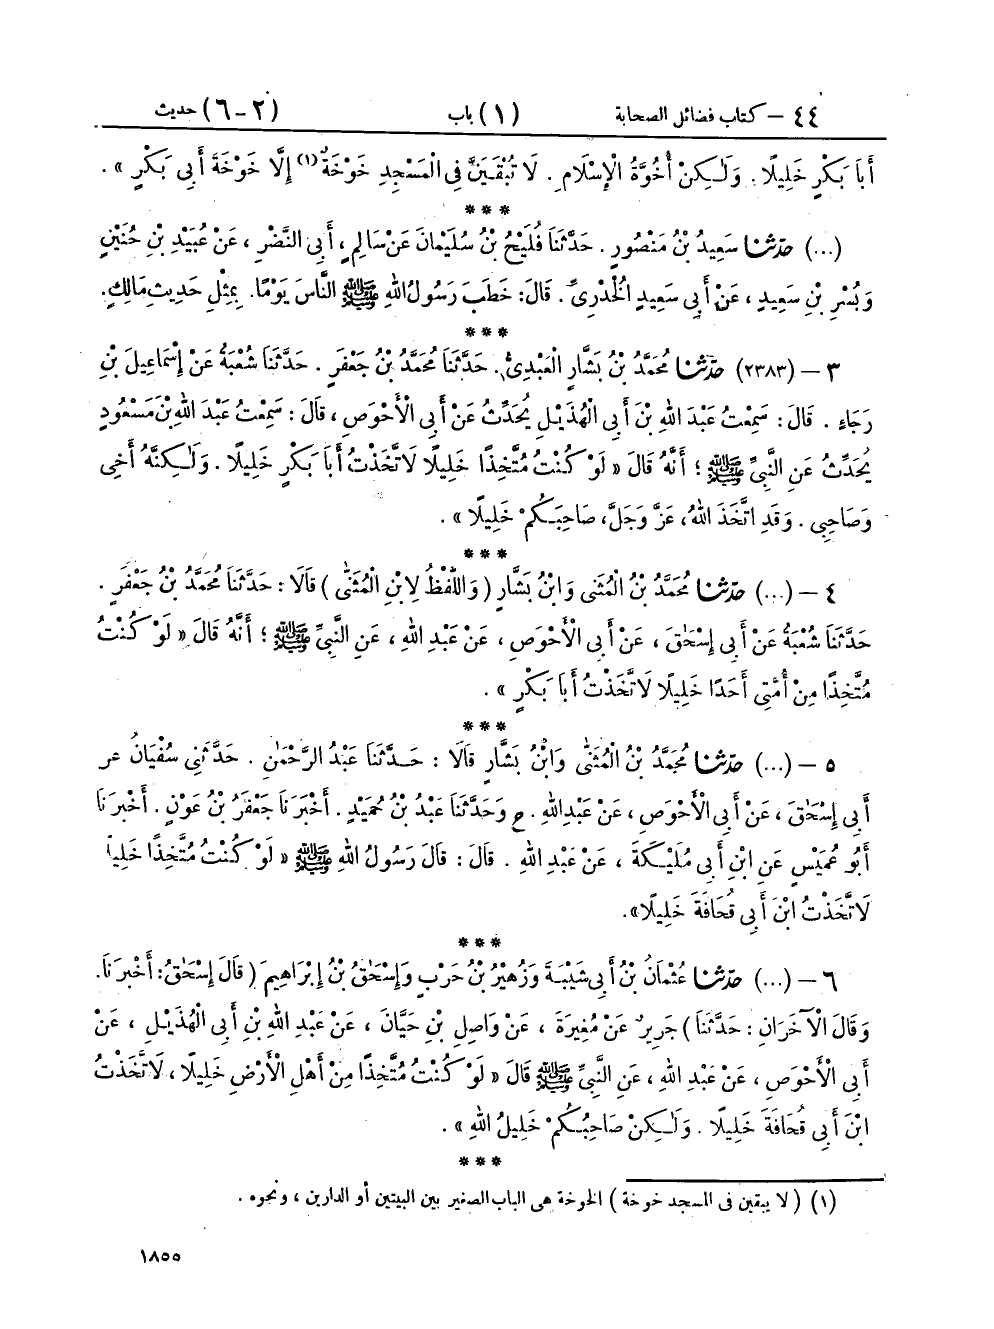 ٤٤ – كتاب فضائل الصحابة (١) باب (٢ – ٦) حديث
أَبَا بَكْرٍ خَلِيلًا . وَلَـٰكِنْ أُخُوَّةُ الْإِسْلَامِ . لَا تُبْقَيَنَّ فِي الْمَسْجِدِ خَوْخَةٌ(١) إِلَّا خَوْخَةَ أَبِي بَكْرٍ » .
***
(...) حَدَّثَنَا سَعِيدُ بْنُ مَنْصُورٍ . حَدَّثَنَا فُلَيْحُ بْنُ سُلَيْمَانَ عَنْ سَالِمٍ ، أَبِي النَّضْرِ ، عَنْ عُبَيْدِ بْنِ حُنَيْنٍ
وَبُسْرِ بْنِ سَعِيدٍ ، عَنْ أَبِي سَعِيدٍ الْخُدْرِيِّ . قَالَ : خَطَبَ رَسُولُ اللهِ ﷺ النَّاسَ يَوْمًا . بِمِثْلِ حَدِيثِ مَالِكٍ .
***
٣ – (٢٣٨٣) حَدَّثَنَا مُحَمَّدُ بْنُ بَشَّارٍ الْعَبْدِيُّ . حَدَّثَنَا مُحَمَّدُ بْنُ جَعْفَرٍ . حَدَّثَنَا شُعْبَةُ عَنْ إِسْمَاعِيلَ بْنِ
رَجَاءٍ . قَالَ : سَمِعْتُ عَبْدَ اللهِ بْنَ أَبِي الْهُذَيْلِ يُحَدِّثُ عَنْ أَبِي الْأَحْوَصِ ، قَالَ : سَمِعْتُ عَبْدَ اللهِ بْنَ مَسْعُودٍ
يُحَدِّثُ عَنِ النَّبِيِّ ﷺ ؛ أَنَّهُ قَالَ « لَوْ كُنْتُ مُتَّخِذًا خَلِيلًا لَاتَّخَذْتُ أَبَا بَكْرٍ خَلِيلًا . وَلَـٰكِنَّهُ أَخِي
وَصَاحِبِي . وَقَدِ اتَّخَذَ اللهُ ، عَزَّ وَجَلَّ ، صَاحِبَكُمْ خَلِيلًا » .
***
٤ – (...) حَدَّثَنَا مُحَمَّدُ بْنُ الْمُثَنَّى وَابْنُ بَشَّارٍ ( وَاللَّفْظُ لِابْنِ الْمُثَنَّى ) قَالَا : حَدَّثَنَا مُحَمَّدُ بْنُ جَعْفَرٍ .
حَدَّثَنَا شُعْبَةُ عَنْ أَبِي إِسْحَٰقَ ، عَنْ أَبِي الْأَحْوَصِ ، عَنْ عَبْدِ اللهِ ، عَنِ النَّبِيِّ ﷺ ؛ أَنَّهُ قَالَ « لَوْ كُنْتُ
مُتَّخِذًا مِنْ أُمَّتِي أَحَدًا خَلِيلًا لَاتَّخَذْتُ أَبَا بَكْرٍ » .
***
٥ – (...) حَدَّثَنَا مُحَمَّدُ بْنُ الْمُثَنَّى وَابْنُ بَشَّارٍ قَالَا : حَدَّثَنَا عَبْدُ الرَّحْمَٰنِ . حَدَّثَنِي سُفْيَانُ عن
أَبِي إِسْحَٰقَ ، عَنْ أَبِي الْأَحْوَصِ ، عَنْ عَبْدِ اللهِ . ح وَحَدَّثَنَا عَبْدُ بْنُ حُمَيْدٍ . أَخْبَرَنَا جَعْفَرُ بْنُ عَوْنٍ . أَخْبَرَنَا
أَبُو عُمَيْسٍ عَنِ ابْنِ أَبِي مُلَيْكَةَ ، عَنْ عَبْدِ اللهِ . قَالَ : قَالَ رَسُولُ اللهِ ﷺ « لَوْ كُنْتُ مُتَّخِذًا خَلِيلًا
لَاتَّخَذْتُ ابْنَ أَبِي قُحَافَةَ خَلِيلًا » .
***
٦ – (...) حَدَّثَنَا عُثْمَانُ بْنُ أَبِي شَيْبَةَ وَزُهَيْرُ بْنُ حَرْبٍ وَإِسْحَٰقُ بْنُ إِبْرَاهِيمَ ( قَالَ إِسْحَٰقُ : أَخْبَرَنَا .
وَقَالَ الْآخَرَانِ : حَدَّثَنَا ) جَرِيرٌ عَنْ مُغِيرَةَ ، عَنْ وَاصِلِ بْنِ حَيَّانَ ، عَنْ عَبْدِ اللهِ بْنِ أَبِي الْهُذَيْلِ ، عَنْ
أَبِي الْأَحْوَصِ ، عَنْ عَبْدِ اللهِ ، عَنِ النَّبِيِّ ﷺ قَالَ « لَوْ كُنْتُ مُتَّخِذًا مِنْ أَهْلِ الْأَرْضِ خَلِيلًا ، لَاتَّخَذْتُ
ابْنَ أَبِي قُحَافَةَ خَلِيلًا . وَلَـٰكِنْ صَاحِبُكُمْ خَلِيلُ اللهِ » .
***
(١) ( لا يبقين في المسجد خوخة ) الخوخة هي الباب الصغير بين البيتين أو الدارين ، ونحوه .
١٨٥٥